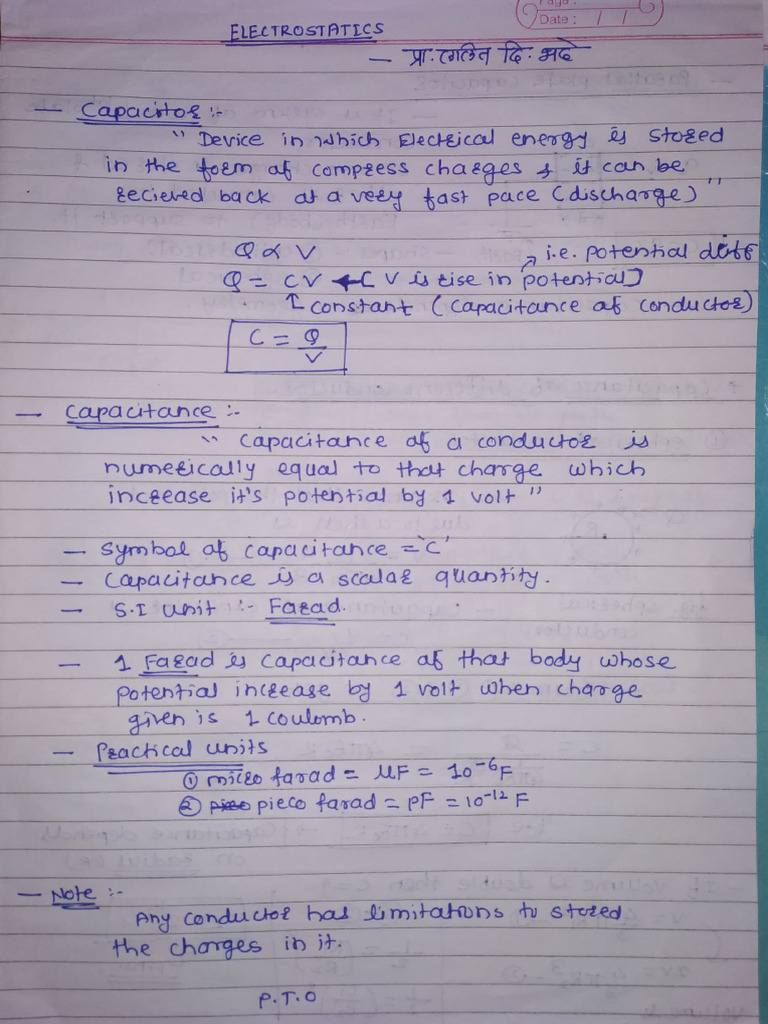 Page:
Date: / /
ELECTROSTATICS
— प्रा. ललित दि. भदे
— Capacitor :-
" Device in which Electrical energy is stored
in the form of compress charges & it can be
recieved back at a very fast pace (discharge) "
Q ∝ V
i.e. potential diff
Q = CV ← [V is rise in potential]
↑ constant (capacitance of conductor)
C = Q/V
— Capacitance :-
" Capacitance of a conductor is
numerically equal to that charge which
increase it's potential by 1 volt "
— symbol of capacitance = 'C'
— Capacitance is a scalar quantity.
— S.I unit :- Farad.
— 1 Farad is capacitance of that body whose
potential increase by 1 volt when charge
given is 1 coulomb.
— Practical units
① micro farad = μF = 10⁻⁶F
② pieco farad = pF = 10⁻¹² F
— Note :-
Any conductor has limitations to stored
the charges in it.
P.T.O